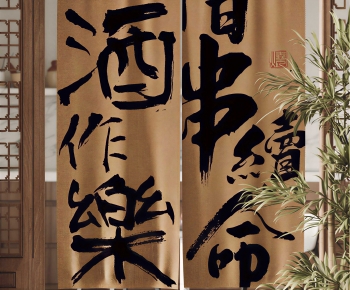 串續命
酒作樂